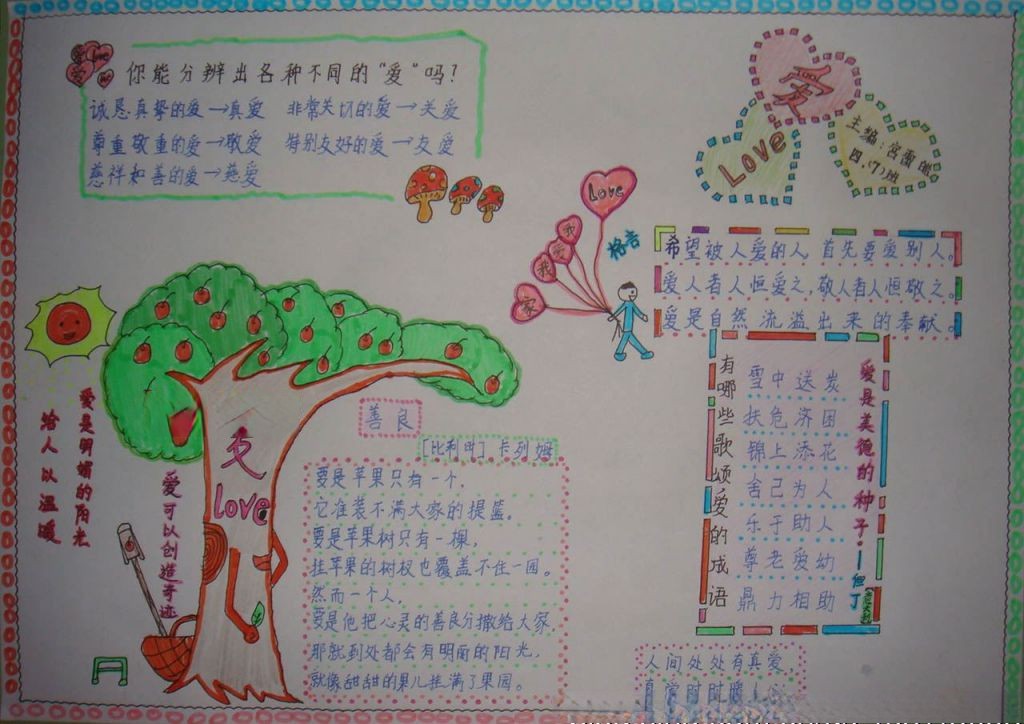 你能分辨出各种不同的“爱”吗?
诚恳真挚的爱→真爱 非常关切的爱→关爱
尊重敬重的爱→敬爱 特别友好的爱→友爱
慈祥和善的爱→慈爱
爱
Love
主编:宫
四.(7)班
Love
我
爱
我
家
格言
希望被人爱的人,首先要爱别人。
爱人者人恒爱之,敬人者人恒敬之。
爱是自然流溢出来的奉献。
有哪些歌颂爱的成语
雪中送炭
扶危济困
锦上添花
舍己为人
乐于助人
尊老爱幼
鼎力相助
爱是美德的种子·——但丁
爱是明媚的阳光
给人以温暖
爱可以创造奇迹
love
善良
[比利时] 卡列姆
要是苹果只有一个,
它准装不满大家的提篮。
要是苹果树只有一棵,
挂苹果的树杈也覆盖不住一园。
然而一个人,
要是他把心灵的善良分撒给大家,
那就到处都会有明丽的阳光,
就像甜甜的果儿挂满了果园。
人间处处有真爱,
时时暖人